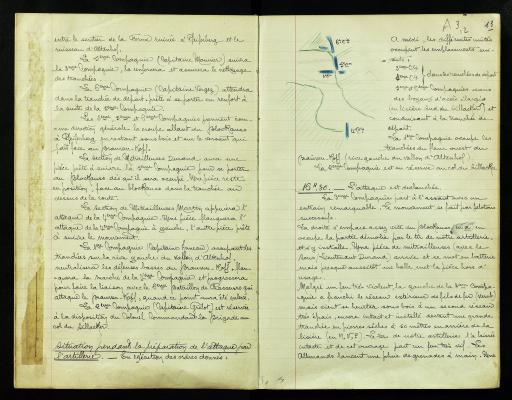 entre le sentier de la Ferme ruinée à Pfeifsberg et le
ruisseau d'Altenhof.
La 5ème Compagnie (Capitaine Mounier) suivra
la 3ème Compagnie, la renforcera et assurera le nettoyage
des tranchées.
La 6ème Compagnie (Capitaine Vagez) attendra
dans la tranchée de départ, prête à se porter en renfort à
la suite de la 5ème Compagnie.
Les 3ème, 5ème et 6ème Compagnies prennent com-
me direction générale la croupe allant du Blockhaus
à Pfeifsberg, en restant sous bois et sur le versant qui
fait face au Braunen-Kopf.
La section de Mitrailleuses Durand aura une
pièce prête à suivre la 3ème Compagnie pour se porter
au Blockhaus dès qu'il sera occupé. Une pièce reste
en position face au blockhaus dans la tranchée au
dessus de la route.
La section de Mitrailleuses Martin appuiera l'
attaque de la 1ère Compagnie. Une pièce flanquera l'
attaque de la 3ème Compagnie à gauche, l'autre pièce prête
à suivre le mouvement.
La 1ère Compagnie (Capitaine) occupant les
tranchées sur la rive gauche du vallon d'Altenhof,
neutralisera les défenses basses du Braunen-Kopf, flan-
quera la gauche de la 3ème Compagnie et progressera
pour faire la liaison avec le Bataillon de Chasseurs qui
attaque le Braunen-Kopf, quand ce point aura été enlevé.
La 2ème Compagnie (Capitaine) est réservée
à la disposition du Colonel Commandant la Brigade au
col du Sillacker.
Situation pendant la préparation de l'attaque par
l'artillerie. — En exécution des ordres donnés :
A 3
2
13
A midi, les différentes unités
occupent les emplacements sui-
vants :
3ème Cie
5ème Cie
dans les tranchées de départ
6ème Compagnie dans
des boyaux d'accès élargis
en lisière Sud du Sillacker et
conduisant à la tranchée de
départ.
La 1ère Compagnie occupe les
tranchées de flanc ouest du
Braunen-Kopf (rive gauche du vallon d'Altenhof).
La 2ème Compagnie est en réserve au col du Sillacker.
15H30. — L'attaque est déclanchée.
La 3ème Compagnie part à l'assaut avec un
entrain remarquable. Le mouvement se fait par pelotons
successifs.
La droite s'empare assez vite du Blockhaus, ou
occupe la partie démolie par le tir de notre artillerie
et s'y installe. Une pièce de mitrailleuses (avec le
Sous-Lieutenant Durand) arrive et se met en batterie
mais presque aussitôt une balle met la pièce hors d'
usage.
Malgré un feu très violent, la gauche de la 3ème Compa-
gnie a franchi le réseau extérieur de fil de fer
mais vient se heurter, sous bois à un second réseau
très épais, encore intact et installé devant une grande
tranchée en pierres sèches à 50 mètres en arrière de la
lisière. Le tir de notre artillerie l'a laissée
intacte et de cet ouvrage part un feu très vif. Les
Allemands lancent une pluie de grenades à main. Une